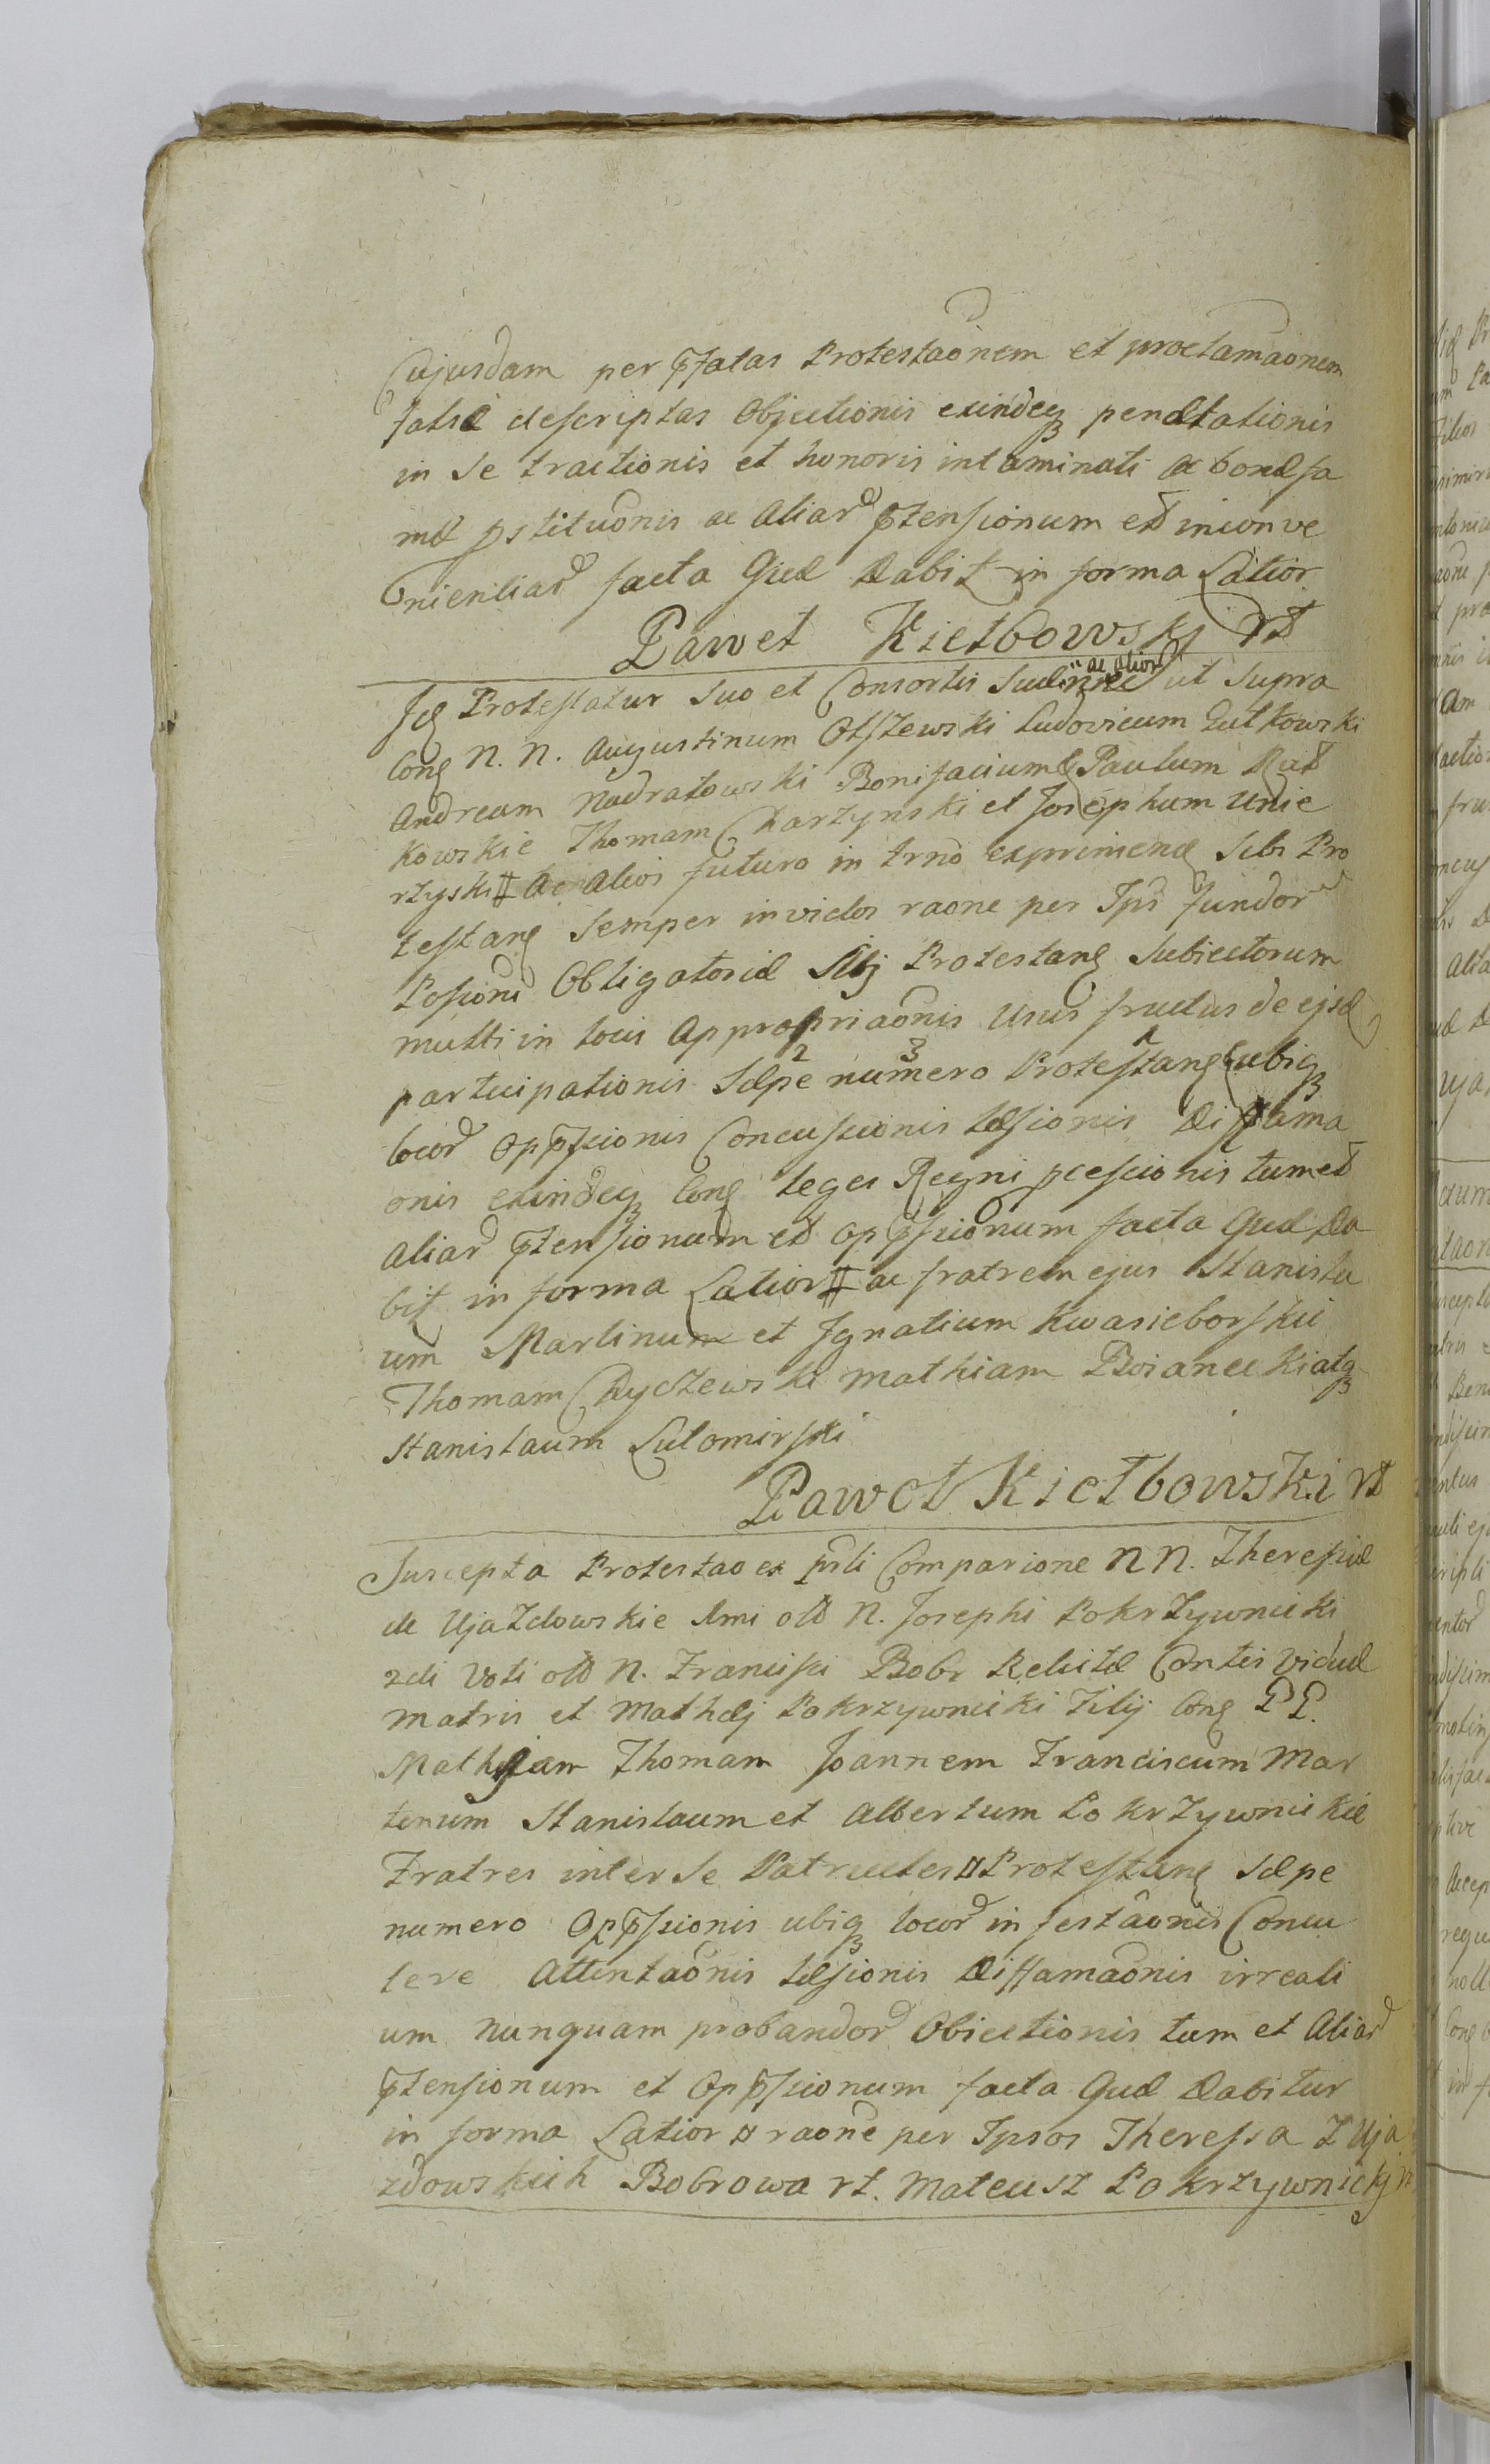 Cujusdam per p̄fatas Protestaōnem et proclamaōnem
false descriptas Objectionis exindeqʒ penæ tationis
in se tractionis et honoris intaminati ac bonæ fa
mæ pstituōnis ac aliar p̄tensionum et inconve
nientiar facta Quæ Dabit in forma Latior
Paweł Kiełbowski
Protestatur suo et Consortis suæ ac alior ut supra
Con N. N. Augustinum Olszewski Ludovicum Gutkowski
Andream Nadratowski Bonifacium & Paulum Rud
kowskie Thomam Charzynski et Josephum Unie
rzyski # Ac alios futuro in trno exprimen sibi Pro
testan semper invictos raone per Ips fundor
Obligatoriæ Protestan Subiectorum
multi in locis Appropriaōnis Usus fructus de ejsd
participationis Sæpe 2 numero 3 Protestan 1 ubiqʒ
locor Opp̄sionis Concussionis læsionis Diffama
onis exindeqʒ Con leges Regni pcessionis tum et
aliar p̄tensionum et opp̄ssionum facta Quæ Da
bit in forma Latior # ac fratrem ejus Stanisła
um Martinum et Ignatium Kwasieborskie
Thomam Chyczewski Mathiam Boianecki atqʒ
Stanislaum Lutomirski
Paweł Kiełbowski
Suscepta Protestao ex prsli Comparione N N. Theresiæ
de Ujazdowskie 1mi olt N. Josephi Pokrzywnicki
2di Voti olt N. Francisci Bobr Relictæ Contis Viduæ
Matris et Mathæj Pokrzywnicki Filij Con PP.
Mathiam Thomam Joannem Franciscum Mar
tinum Stanislaum et Albertum Pokrzywnickie
Fratres inter se Patrueles ¤ Protestan Sæpe
numero Opp̄ssionis ubiqʒ locor infestaōnis Concu
Attentaōnis læsionis Diffamaōnis irreali
um nunquam probandor Obiectionis tum et Aliar
p̄tensionum et Opp̄ssionum facta Quæ Dabitur
in forma Latior ¤ raōne per Ipsos Theressa Z Uja
zdowskich Bobrowa rt. Mateusz Pokrzywnickj